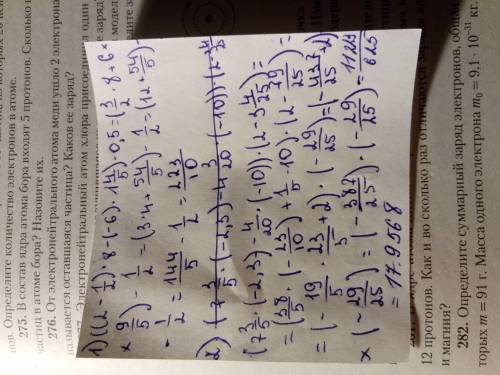 нов. Определите количество электронов в атоме.
275. В состав ядра атома бора входят 5 протонов. Сколько
частиц в атоме бора? Назовите их.
276. От электронейтрального атома меди ушло 2 электрона
называется оставшаяся частица? Каков ее заряд?
Электронейтральный атом хлора присоединил один
1) ((2 - 1/2) · 8 - (-6) · 1 4/5) · 0,5 = (3/2 · 8 + 6 ×
× 9/5) - 1/2 = (3·4 + 54/5) - 1/2 = (12 + 54/5) -
- 1/2 = 144/5 - 1/2 = 223/10
2)
(7 3/5 · (-2,3) - 4/20 · (-10)) · (2 - 3 4/25) =
= (38/5 · (-23/10) + 1/5 · 10) · (2 - 79/25) =
= (- 19/5 · 23/5 + 2) · (- 29/25) = (- 437/25 + 2) ×
× (- 29/25) = (- 387/25) · (- 29/25) = 11223/625
= 17.9568
12 протонов. Как и во сколько раз отличаются
и магния?
282. Определите суммарный заряд электронов,
торых m = 91 г. Масса одного электрона m₀ = 9,1 · 10⁻³¹ кг.